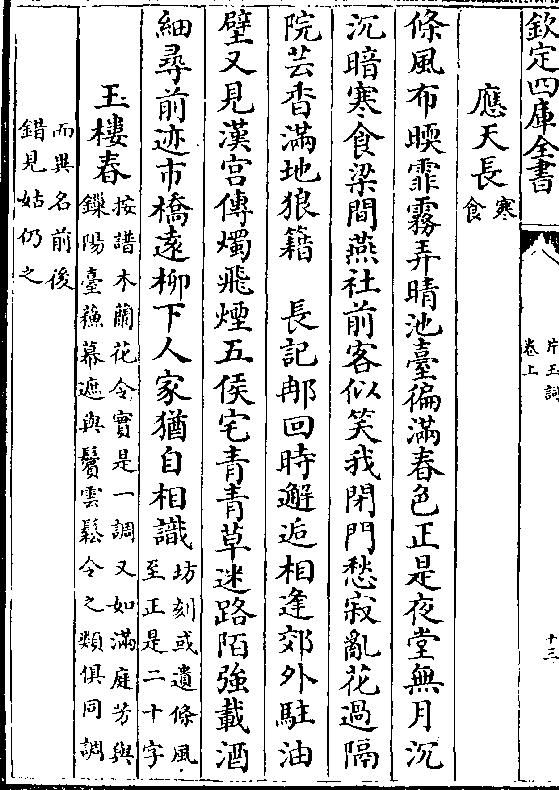 欽定四庫全書
片玉詞
卷上
十三
應天長
寒
食
條風布暖霏霧弄晴池臺徧滿春色正是夜堂無月沉
沉暗寒食梁間燕社前客似笑我閉門愁寂亂花過隔
院芸香滿地狼籍　長記那回時邂逅相逢郊外駐油
壁又見漢宫傳燭飛煙五侯宅青青草迷路陌強載酒
細尋前迹市橋遠柳下人家猶自相識
坊刻或遺條風
至正是二十字
玉樓春
按譜木蘭花令實是一調又如滿庭芳與
鏁陽臺蘓幕遮與鬢雲鬆令之類俱同調
而異名前後
錯見姑仍之